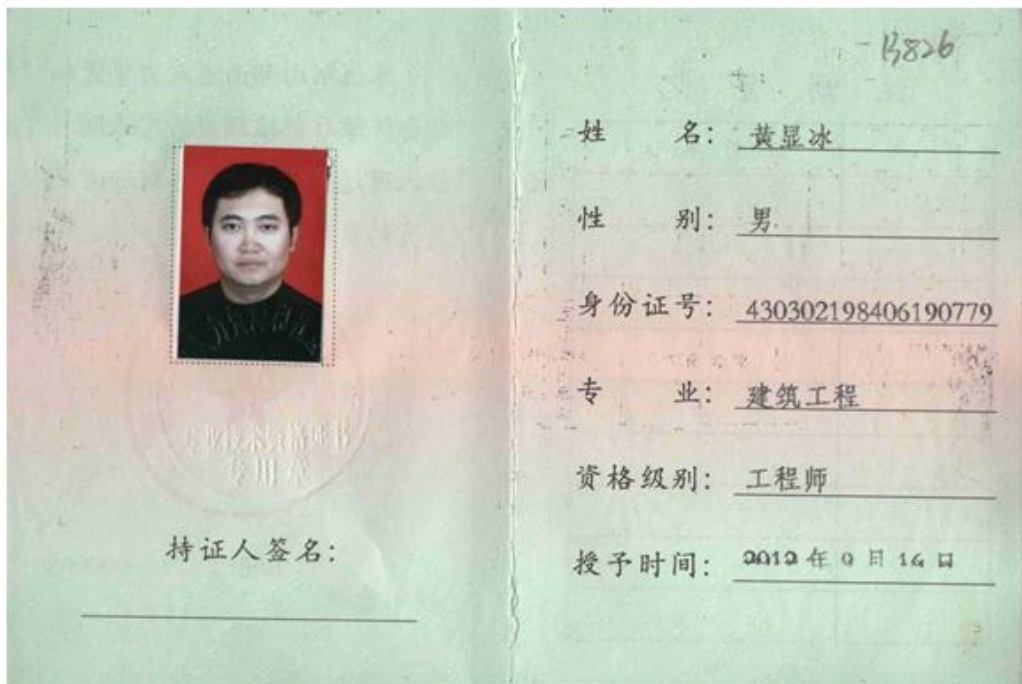 专业技术资格证书
专用章
持证人签名:
B826
姓 名: 黄显冰
性 别: 男
身份证号: 430302198406190779
专 业: 建筑工程
资格级别: 工程师
授予时间: 2012 年 9 月 16 日